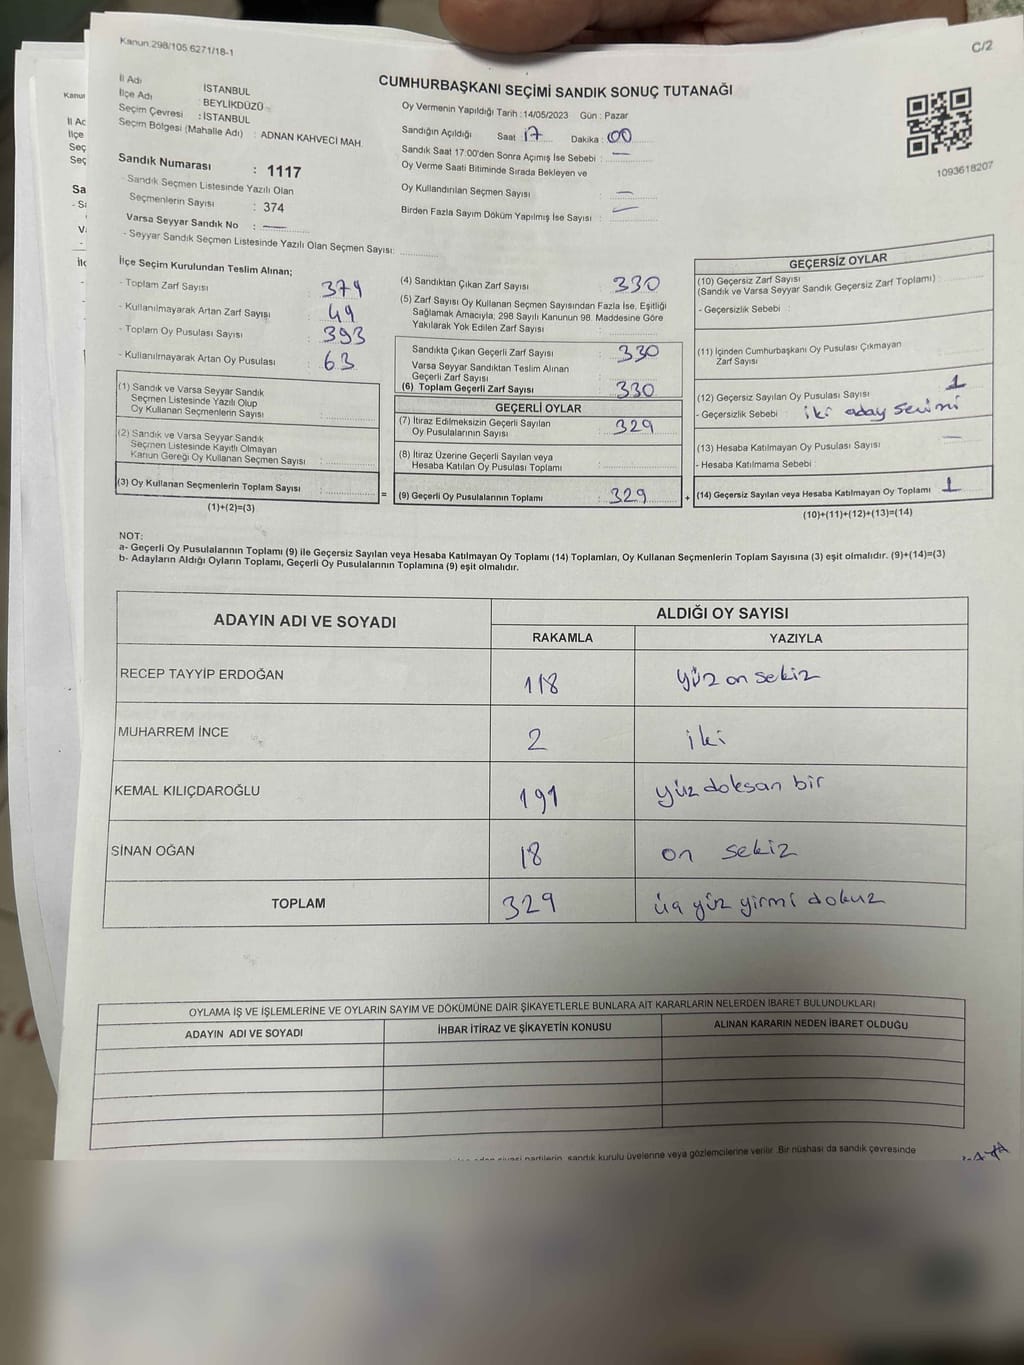 Kanun 298/105 6271/18-1
C/2
CUMHURBAŞKANI SEÇİMİ SANDIK SONUÇ TUTANAĞI
İl Adı : İSTANBUL
İlçe Adı : BEYLİKDÜZÜ
Seçim Çevresi : İSTANBUL
Seçim Bölgesi (Mahalle Adı) : ADNAN KAHVECİ MAH.
Sandık Numarası : 1117
- Sandık Seçmen Listesinde Yazılı Olan
Seçmenlerin Sayısı : 374
Varsa Seyyar Sandık No : —
- Seyyar Sandık Seçmen Listesinde Yazılı Olan Seçmen Sayısı:
Oy Vermenin Yapıldığı Tarih : 14/05/2023 Gün : Pazar
Sandığın Açıldığı Saat : 17 Dakika : 00
Sandık Saat 17:00'den Sonra Açımış İse Sebebi : —
Oy Verme Saati Bitiminde Sırada Bekleyen ve
Oy Kullandırılan Seçmen Sayısı : —
Birden Fazla Sayım Döküm Yapılmış İse Sayısı : —
1093618207
İlçe Seçim Kurulundan Teslim Alınan;
- Toplam Zarf Sayısı : 379
- Kullanılmayarak Artan Zarf Sayısı : 49
- Toplam Oy Pusulası Sayısı : 393
- Kullanılmayarak Artan Oy Pusulası : 63
(1) Sandık ve Varsa Seyyar Sandık
Seçmen Listesinde Yazılı Olup
Oy Kullanan Seçmenlerin Sayısı :
(2) Sandık ve Varsa Seyyar Sandık
Seçmen Listesinde Kayıtlı Olmayan
Kanun Gereği Oy Kullanan Seçmen Sayısı :
(3) Oy Kullanan Seçmenlerin Toplam Sayısı :
(1)+(2)=(3)
=
(4) Sandıktan Çıkan Zarf Sayısı : 330
(5) Zarf Sayısı Oy Kullanan Seçmen Sayısından Fazla İse, Eşitliği
Sağlamak Amacıyla; 298 Sayılı Kanunun 98. Maddesine Göre
Yakılarak Yok Edilen Zarf Sayısı :
Sandıkta Çıkan Geçerli Zarf Sayısı : 330
Varsa Seyyar Sandıktan Teslim Alınan
Geçerli Zarf Sayısı :
(6) Toplam Geçerli Zarf Sayısı : 330
GEÇERLİ OYLAR
(7) İtiraz Edilmeksizin Geçerli Sayılan
Oy Pusulalarının Sayısı : 329
(8) İtiraz Üzerine Geçerli Sayılan veya
Hesaba Katılan Oy Pusulası Toplamı :
(9) Geçerli Oy Pusulalarının Toplamı : 329
+
GEÇERSİZ OYLAR
(10) Geçersiz Zarf Sayısı
(Sandık ve Varsa Seyyar Sandık Geçersiz Zarf Toplamı) :
- Geçersizlik Sebebi :
(11) İçinden Cumhurbaşkanı Oy Pusulası Çıkmayan
Zarf Sayısı
(12) Geçersiz Sayılan Oy Pusulası Sayısı 1
- Geçersizlik Sebebi : iki aday seçimi
(13) Hesaba Katılmayan Oy Pusulası Sayısı —
- Hesaba Katılmama Sebebi :
(14) Geçersiz Sayılan veya Hesaba Katılmayan Oy Toplamı 1
(10)+(11)+(12)+(13)=(14)
NOT:
a- Geçerli Oy Pusulalarının Toplamı (9) ile Geçersiz Sayılan veya Hesaba Katılmayan Oy Toplamı (14) Toplamları, Oy Kullanan Seçmenlerin Toplam Sayısına (3) eşit olmalıdır. (9)+(14)=(3)
b- Adayların Aldığı Oyların Toplamı, Geçerli Oy Pusulalarının Toplamına (9) eşit olmalıdır.
ADAYIN ADI VE SOYADI
ALDIĞI OY SAYISI
RAKAMLA YAZIYLA
RECEP TAYYİP ERDOĞAN 118 yüz on sekiz
MUHARREM İNCE 2 iki
KEMAL KILIÇDAROĞLU 191 yüz doksan bir
SİNAN OĞAN 18 on sekiz
TOPLAM 329 üç yüz yirmi dokuz
OYLAMA İŞ VE İŞLEMLERİNE VE OYLARIN SAYIM VE DÖKÜMÜNE DAİR ŞİKAYETLERLE BUNLARA AİT KARARLARIN NELERDEN İBARET BULUNDUKLARI
ADAYIN ADI VE SOYADI İHBAR İTİRAZ VE ŞİKAYETİN KONUSU ALINAN KARARIN NEDEN İBARET OLDUĞU
sandık kurulu üyelerine veya gözlemcilerine verilir. Bir nüshası da sandık çevresinde